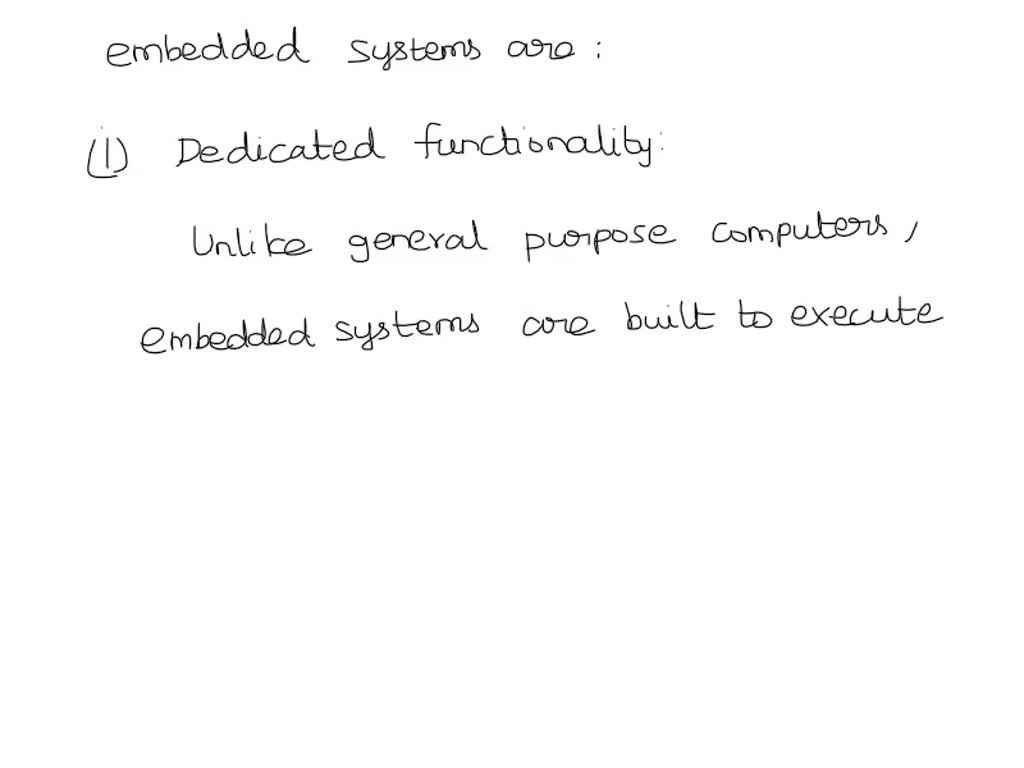 embedded systems are :
(1) Dedicated functionality:
Unlike general purpose computers,
embedded systems are built to execute